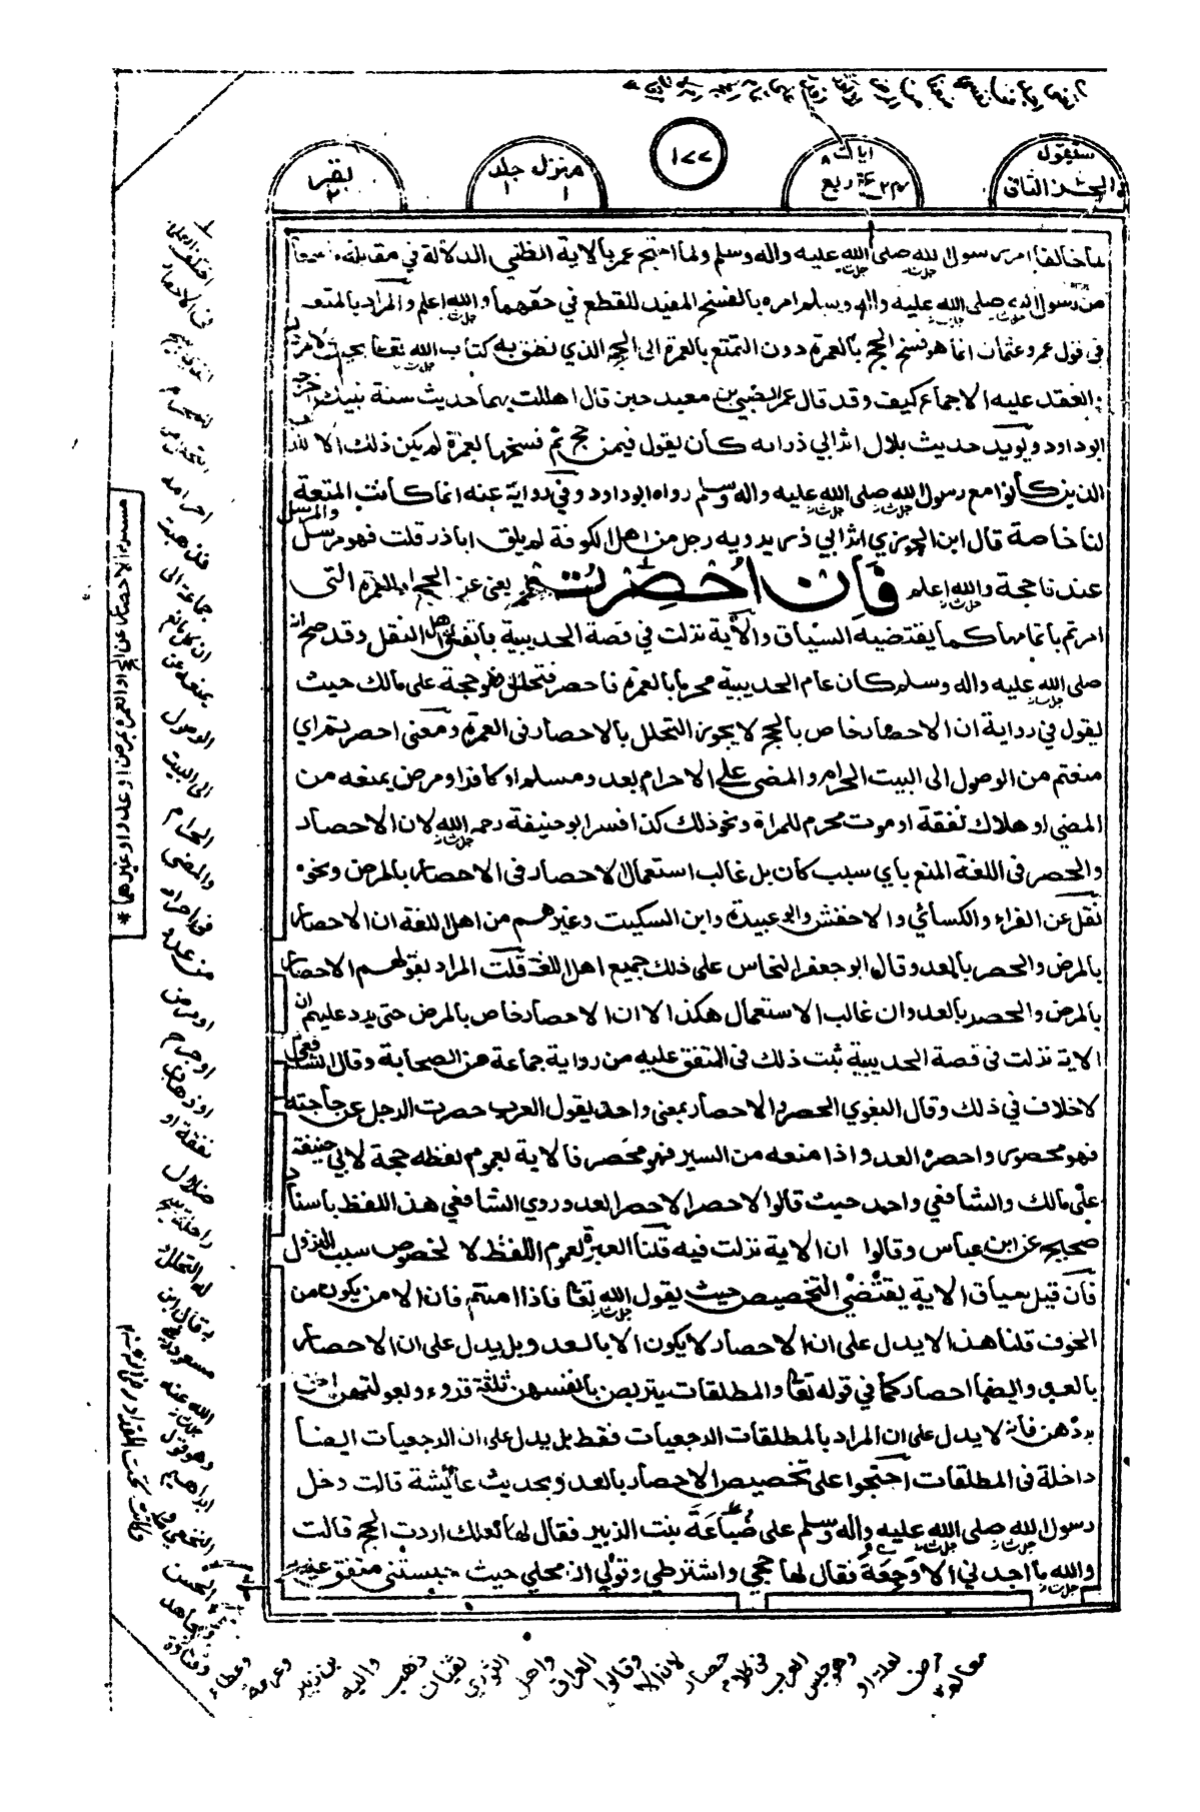 سيقول
والجزء الثاني
ربع
١٧٧
منزل ١ جلد ١
بقر ٢
ما خالفا امر رسول الله صلى الله عليه واله وسلم ولما احتج عمر بالاية الظني الدلالة في مقابلة
من رسول الله صلى الله عليه واله وسلم امره بالفسخ المفيد للقطع في حقهما والله اعلم والمراد بالمتعة
في قول عمر وعثمان انما هو فسخ الحج بالعمرة دون التمتع بالعمرة الى الحج الذي نطق به كتاب الله تعالى بحيث
انعقد عليه الاجماع كيف وقد قال عمر للضبي بن معبد حين قال اهللت بهما حديث سنة نبيك
ابو داود ويويد حديث بلال اثر ابي ذر انه كان يقول فيمن حج ثم فسخها بعمرة لم يكن ذلك الا
الذين كانوا مع رسول الله صلى الله عليه واله وسلم رواه ابو داود وفي رواية عنه انما كانت المتعة
لنا خاصة قال ابن الجوزي اثر ابي ذر يرويه رجل من اهل الكوفة لم يلق اباذر قلت فهو مرسل والمرسل
عندنا حجة والله اعلم فَاِنْ اُحْصِرْتُمْ يعني عن الحج او العمرة التي
امرتم باتمامها كما يقتضيه السياق والآية نزلت في قصة الحديبية باتفاق اهل النقل وقد صح انه
صلى الله عليه واله وسلم كان عام الحديبية محرما بالعمرة فاحصر فتحلل فهو حجة على مالك حيث
يقول في رواية ان الاحصار خاص بالحج لا يجوز التحلل بالاحصار في العمرة ومعنى احصرتم اي
منعتم من الوصول الى البيت الحرام والمضي على الاحرام بعدو مسلم او كافر او مرض يمنعه من
المضي او هلاك نفقة او موت محرم للمراة ونحو ذلك كذا فسر ابو حنيفة رحمه الله لان الاحصار
والحصر في اللغة المنع باي سبب كان بل غالب استعمال الاحصار في الاحصار بالمرض ونحوه
نقل عن الفراء والكسائي والاخفش وابو عبيدة وابن السكيت وغيرهم من اهل اللغة ان الاحصار
بالمرض والحصر بالعدو وقال ابو جعفر النحاس على ذلك جميع اهل اللغة قلت المراد بقولهم الاحصار
بالمرض والحصر بالعدو ان غالب الاستعمال هكذا الا ان الاحصار خاص بالمرض حتى يرد عليهم ان
الاية نزلت في قصة الحديبية ثبت ذلك في المتفق عليه من رواية جماعة من الصحابة وقال الشافعي
لا خلاف في ذلك وقال البغوي الحصر والاحصار بمعنى واحد يقول العرب حصرت الرجل عن حاجته
فهو محصور واحصره العدو اذا منعه من السير فهو محصر فالاية بعموم لفظه حجة لابي حنيفة
على مالك والشافعي واحمد حيث قالوا لا حصر الا حصر العدو وروي الشافعي هذا اللفظ باسناد
صحيح عن ابن عباس وقالوا ان الاية نزلت فيه قلنا العبرة لعموم اللفظ لا لخصوص سبب النزول
فان قيل سياق الاية يقتضي التخصيص حيث يقول الله تعالى فاذا امنتم فان الامن يكون من
الخوف قلنا هذا لا يدل على ان الاحصار لا يكون الا بالعدو بل يدل على ان الاحصار
بالعدو ايضا احصار كما في قوله تعالى والمطلقات يتربصن بانفسهن ثلثة قروء وبعولتهن احق
بردهن فانه لا يدل على ان المراد بالمطلقات الرجعيات فقط بل يدل على ان الرجعيات ايضا
داخلة في المطلقات احتجوا على تخصيص الاحصار بالعدو بحديث عائشة قالت دخل
رسول الله صلى الله عليه واله وسلم على ضُبَاعَة بنت الزبير فقال لها لعلك اردت الحج قالت
والله ما اجدني الا وَجِعَةً فقال لها حجي واشترطي وقولي ان محلي حيث حبستني متفق عليه
مسئلة الاحصار عن الحج او العمرة بمرض او عدو او غيرهما *
اختلف العلماء
في الاحصار
الذي يبيح
للمحرم
التحلل من
احرامه
فذهبت
جماعة الى
ان كل مانع
يمنعه عن
الوصول
الى البيت
الحرام
والمضي
في احرامه
من عدو
او مرض
او جرح
او ذهاب
نفقة او
ضلال
راحلة يبيح
له التحلل
وبه قال ابن
مسعود رضي
الله عنه
وهو قول
ابراهيم
النخعي
والحسن
ومجاهد
وقتادة
وعطاء
وعروة
بن زبير
واليه
ذهب
سفيان
الثوري
واهل
العراق
وقالوا
لان الا
حصار
في كلام
العرب
وهو حبس
لعلة او
مرض
معالم